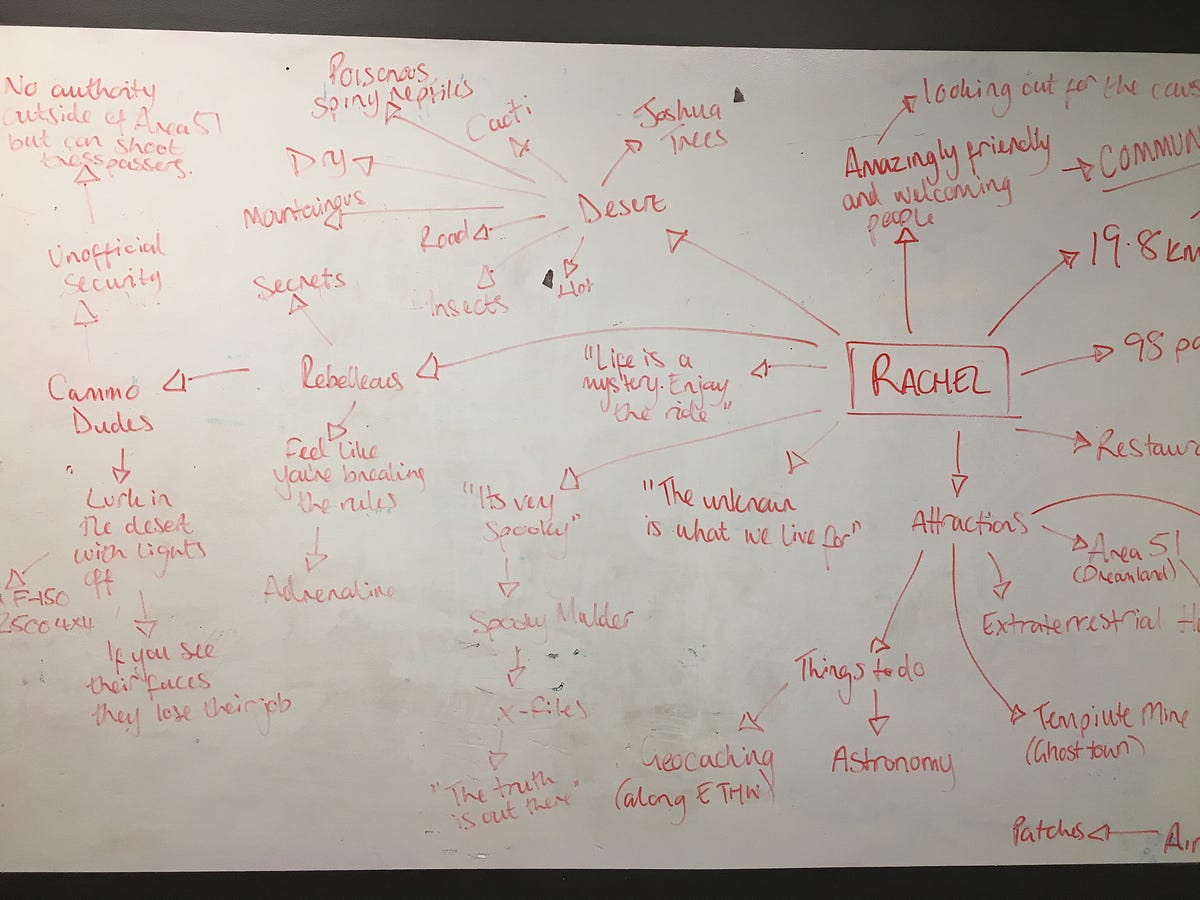 No authority
outside of Area 51
but can shoot
tresspassers.
Unofficial
security
Cammo
Dudes
Lurk in
the desert
with lights
off
F-150
2500 4x4
If you see
their faces
they lose their job
Poisonous
spiny reptiles
Cacti
Joshua
Trees
Dry
Mountainous
Road
Desert
Insects
Hot
Secrets
Rebellious
Feel like
you're breaking
the rules
Adrenaline
"Life is a
mystery. Enjoy
the ride"
"Its very
Spooky"
Spooky Mulder
X-Files
"The truth
is out there"
"The unknown
is what we live for"
looking out for the
Amazingly friendly
and welcoming
people
COMMUN
19.8 km
RACHEL
98
Restaur
Attractions
Area 51
(Dreamland)
Extraterrestrial
Things to do
Geocaching
(along ETHW)
Astronomy
Tempiute Mine
(Ghost town)
Patches
Air